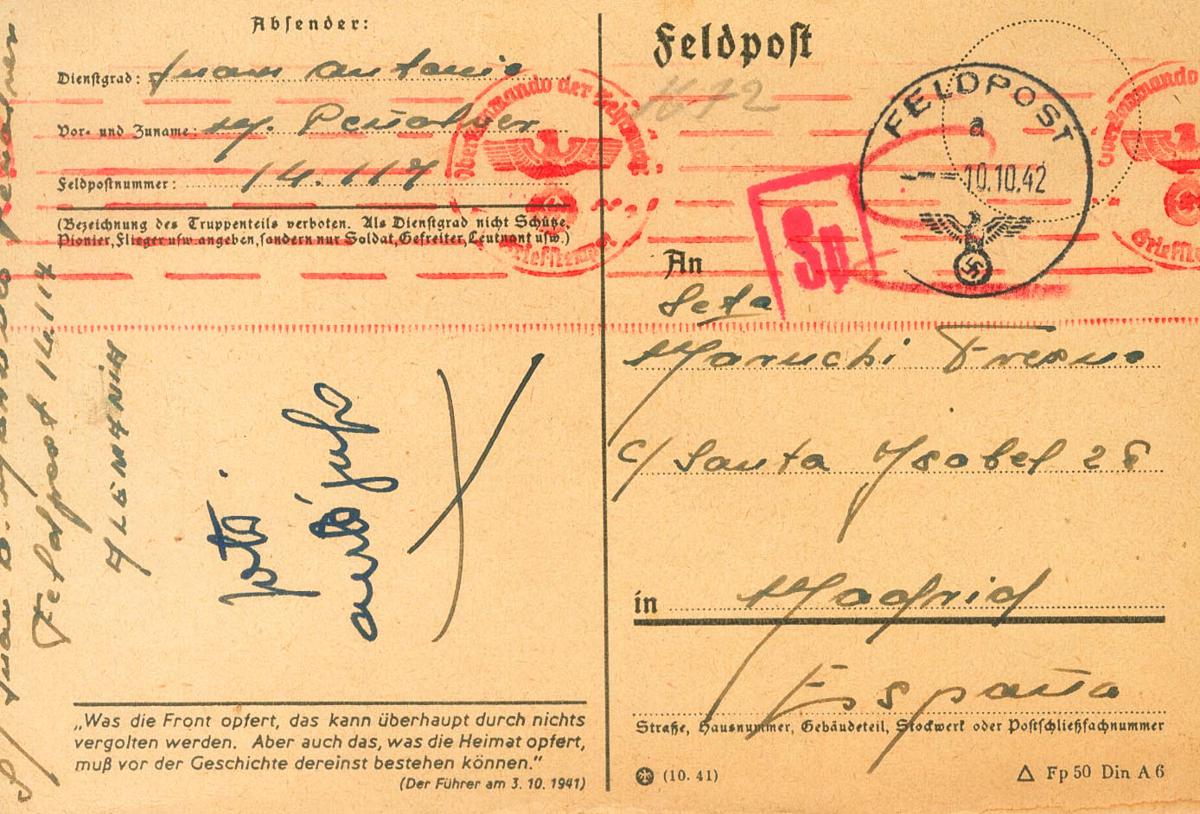 Absender:
Dienstgrad: Juan Antonio
Vor- und Zuname: Peñalver
Feldpostnummer: 14.117
(Bezeichnung des Truppenteils verboten. Als Dienstgrad nicht Schütze,
Pionier, Flieger usw angeben, sondern nur Soldat, Gefreiter, Leutnant usw.)
Oberkommando der Wehrmacht
Briefstempel
Feldpost
FELDPOST
a
10.10.42
Sp
Oberkommando
Briefstempel
An
Seta
Maruchi Fresno
C/ Santa Ysabel 28
in Madrid
España
Straße, Hausnummer, Gebäudeteil, Stockwerk oder Postschließfachnummer
(10. 41)
Fp 50 Din A 6
Feldpost 14.117
ALEMANIA
„Was die Front opfert, das kann überhaupt durch nichts
vergolten werden. Aber auch das, was die Heimat opfert,
muß vor der Geschichte dereinst bestehen können.“
(Der Führer am 3. 10. 1941)